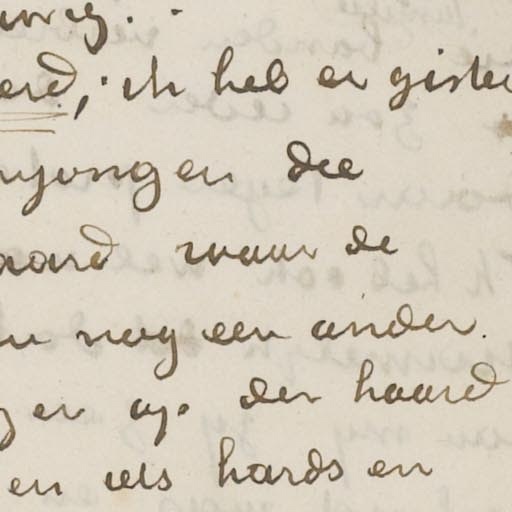 erd, ik heb er gister
njongen die
aard waar de
en nog een ander.
g en op den haard
en iets hards en